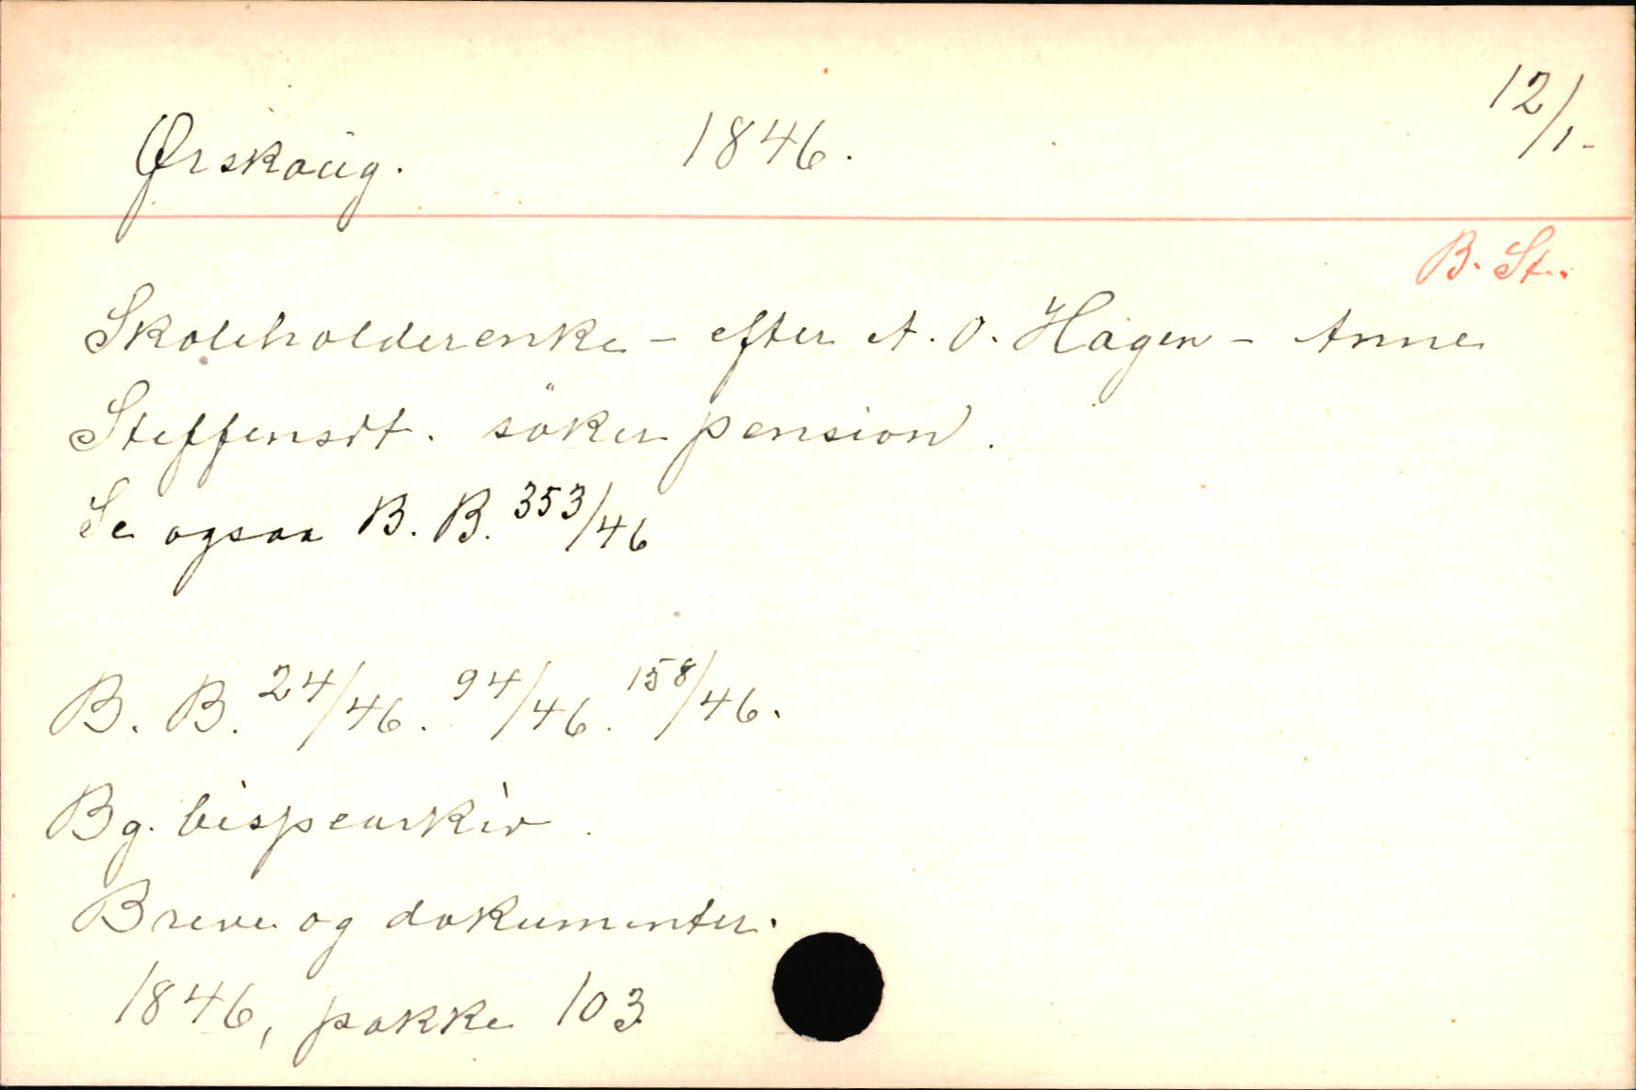 Ørskaug. 1846. 12/1-
B. St.
Skoleholderenke - efter A. O. Hagen - Anne
Steffensdt. söker pension.
Se ogsaa B. B. 353/46
B. B. 24/46. 94/46. 158/46.
Bg. bispearkiv.
Breve og dokumenter.
1846, pakke 103